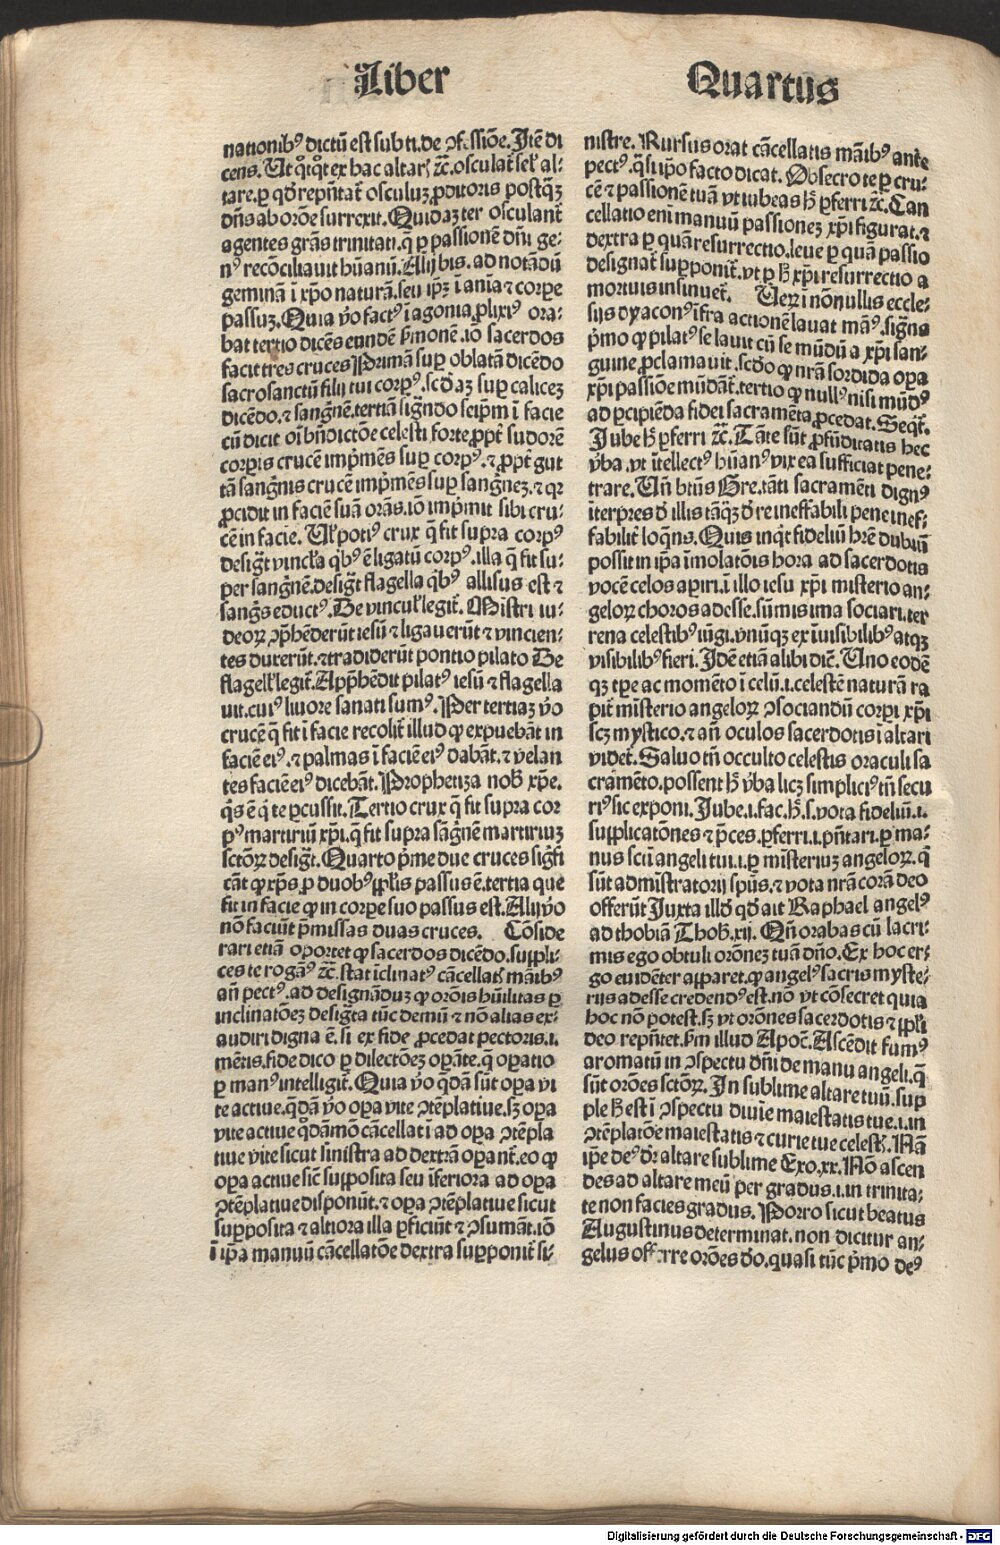 Liber Quartus
nationibꝰ dictū est sub ti. de ꝯfessiōe. Itē di
cens. Ut q̇tq̇t ex hac altarꝭ ⁊c̄. osculat᷑ seł al⸗
tare. ꝑ qd̓ repn̄tat᷑ osculuꝫ ꝓditoris postq̄ꝫ
dn̄s ab orōne surrexit. Quidaꝫ ter osculant᷑
agentes grās trinitati. q̄ ꝑ passionē dn̄i ge⸗
nꝰ recōciliauit hūanū. Alij bis. ad notādū
geminā ī xp̄o naturā. seu ip̄ꝫ ī aīa ⁊ corꝑe
passuꝫ. Quia v̓o factꝰ ī agonia ꝓlixiꝰ ora⸗
bat tertio dicēs eundē s̓monē. iō sacerdos
facit tres cruces Primā suꝑ oblatā dicēdo
sacrosanctū filij tui corpꝰ. scd̓aꝫ suꝑ caliceꝫ
dicēdo. ⁊ sang̓nē. tertiā sig̓ndo seip̄m ī facie
cū dicit oī bn̄dictōe celesti. forte ꝓpt̓ sudorē
corꝑis crucē imp̓mēs suꝑ corpꝰ. ⁊ ꝓpt̓ gut
tā sang̓nis crucē imp̓mēs suꝑ sang̓neꝫ. ⁊ qꝛ
ꝓcidit in faciē suā orās. iō imp̓mit sibi cru⸗
cē in facie. Uł potiꝰ crux q̄ fit supra corpꝰ
desig̓t vincła q̓bꝰ ē ligatū corpꝰ. illa q̄ fit su⸗
per sang̓nē. desig̓t flagella q̓bꝰ allisus est ⁊
sang̓s eductꝰ. De vincuł legit᷑. Mīstri iu⸗
deoꝝ ꝯp̄hēderūt iesū ⁊ ligauerūt ⁊ vincien⸗
tes duxerūt. ⁊ tradiderūt pontio pilato De
flagelł legit᷑. Appħēdit pilatꝰ iesū ⁊ flagella
uit. cuiꝰ liuore sanati sumꝰ. Per tertiaꝫ v̓o
crucē q̄ fit ī facie recolit᷑ illud ꝙ expuebāt in
faciē eiꝰ. ⁊ palmas ī faciē eiꝰ dabāt. ⁊ velan
tes faciē eiꝰ dicebāt. Prophetiza nob̓ xp̄e.
q̓s ē q̓ te ꝑcussit. Tertio crux q̄ fit supra cor
pꝰ martiriū xp̄i. q̄ fit supra sāg̓nē martiriuꝫ
sctōꝝ desig̓t. Quarto p̓me due cruces sig̓fi
cāt ꝙ xp̄s ꝓ duobꝰ ppłis passus ē. tertia que
fit in facie ꝙ in corꝑe suo passus est. Alij v̓o
nō faciūt p̓missas duas cruces. Cōside
rari etiā oportet ꝙ sacerdos dicēdo. suppli⸗
ces te rogāꝰ ⁊c̄. stat īclinatꝰ cācellatꝭ māibꝰ
an̄ pectꝰ. ad designāduꝫ ꝙ orōis hūilitas ꝑ
inclinatōeꝫ desig̓ta tūc demū ⁊ nō alias ex⸗
audiri digna ē. si ex fide ꝓcedat pectoris. i.
mētis. fide dico ꝑ dilectōeꝫ oꝑāte. q̄ oꝑatio
ꝑ manꝰ intelligit᷑. Quia v̓o q̄dā sūt oꝑa vi
te actiue. q̄dā v̓o oꝑa vite ꝯtēplatiue. sꝫ oꝑa
vite actiue q̇dāmō cācellati ad oꝑa ꝯtēpla
tiue vite sicut sinistra ad dextrā oꝑant᷑. eo ꝙ
oꝑa actiue sic̄ supposita seu īferiora ad oꝑa
ꝯtēplatiue disponūt. ⁊ oꝑa ꝯtēplatiue sicut
suꝑposita ⁊ altiora illa ꝑficiūt ⁊ ꝯsumāt. iō
ī ip̄a manuū cācellatōe dextra suꝑponit᷑ si⸗
nistre. Rursus orat cācellatis māibꝰ ante
pectꝰ. q̄si ip̄o facto dicat. Obsecro te ꝑ cru⸗
cē ⁊ passionē tuā vt iubeas h̄ ꝑferri ⁊c̄. Can
cellatio eni manuū passioneꝫ xp̄i figurat. ⁊
dextra ꝑ quā resurrectio. leue ꝑ quā passio
designat᷑ suꝑponit᷑. vt ꝑ h̄ xp̄i resurrectio a
mortuis insinuet᷑. Ueꝝ ī nōnullis eccle⸗
sijs dyaconꝰ īfra actionē lauat māꝰ. sig̓ns
p̓mo ꝙ pilatꝰ se lauit cū se mūdū a xp̄i san⸗
guine ꝓclamauit. scd̓o ꝙ nrā sordida oꝑa
xp̄i passiōe mūdāt᷑. tertio ꝙ nullꝰ nisi mūdꝰ
ad ꝑcipiēda fidei sacramēta ꝓcedat. Seqt᷑.
Iube h̄ ꝑferri ⁊c̄. Tāte sūt ꝓfūditatis hec
v̓ba. vt ītellectꝰ hūanꝰ vix ea sufficiat pene⸗
trare. Un̄ bt̄us Gre. tāti sacramēti dignꝰ
īterpres d̓ illis tāq̄ꝫ d̓ re ineffabili pene inef⸗
fabilit᷑ loq̄ns. Quis inq̇t fideliū hr̄e dubiū
possit in ip̄a īmolatōis hora ad sacerdotis
vocē celos aꝑiri. ī illo iesu xp̄i misterio an⸗
geloꝝ choros adesse. sūmis ima sociari. ter
rena celestibꝰ iūgi. vnūqꝫ ex īuisibilibꝰ atqꝫ
visibilibꝰ fieri. Idē etiā alibi dic̄. Uno eodē
qꝫ tꝑe ac momēto ī celū. i. celestē naturā ra
pit᷑ mīsterio angeloꝝ ꝯsociandū corꝑi xp̄i
scꝫ mystico. ⁊ an̄ oculos sacerdotis ī altari
videt᷑. Saluo tn̄ occulto celestis oraculi sa
cramēto. possent h̄ v̓ba licꝫ simpliciꝰ tn̄ secu
riꝰ sic exponi. Iube. i. fac. h̄. s. vota fideliū. i.
supplicatōnes ⁊ p̓ces. ꝑferri. i. pn̄tari. ꝑ ma⸗
nus scti angeli tui. i. ꝑ misteriuꝫ angeloꝝ. q̄
sūt admīstratorij spūs. ⁊ vota nrā corā deo
offerūt Iuxta illd̓ qd̓ ait Raphael angelꝰ
ad thobiā Thob̓. xij. Qn̄ orabas cū lacri⸗
mis ego obtuli orōneꝫ tuā dn̄o. Ex hoc er⸗
go euidēter apparet. ꝙ angelꝰ sacris myste⸗
rijs adesse credendꝰ est. nō vt cōsecret quia
hoc nō potest. sꝫ vt orōnes sacerdotis ⁊ ppłi
deo repn̄tet. s̓m illud Apoc̄. Ascēdit fumꝰ
aromatū in ꝯspectu dn̄i de manu angeli. q̄
sūt orōes sctōꝝ. In sublime altare tuū. suꝑ
ple h̄ est ī ꝯspectu diuīe maiestatis tue. i. in
ꝯtēplatōe maiestatis ⁊ curie tue celestꝭ. Nā
ip̄e deꝰ d̓r altare sublime Exo. xx. Nō ascen
des ad altare meū per gradus. i. in trinita⸗
te non facies gradus. Porro sicut beatus
Augustinus determinat. non dicitur an⸗
gelus offerre orōes d̓o. quasi tūc p̓mo deꝰ
Digitalisierung gefördert durch die Deutsche Forschungsgemeinschaft - DFG